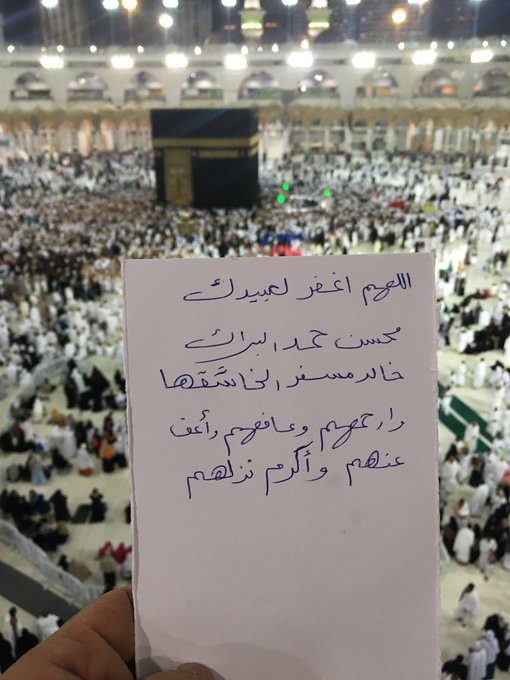 اللهم اغفر لعبيدك
محسن حمد البراك
خالد مسفر
وارحمهم وعافهم وأعف
عنهم وأكرم نزلهم